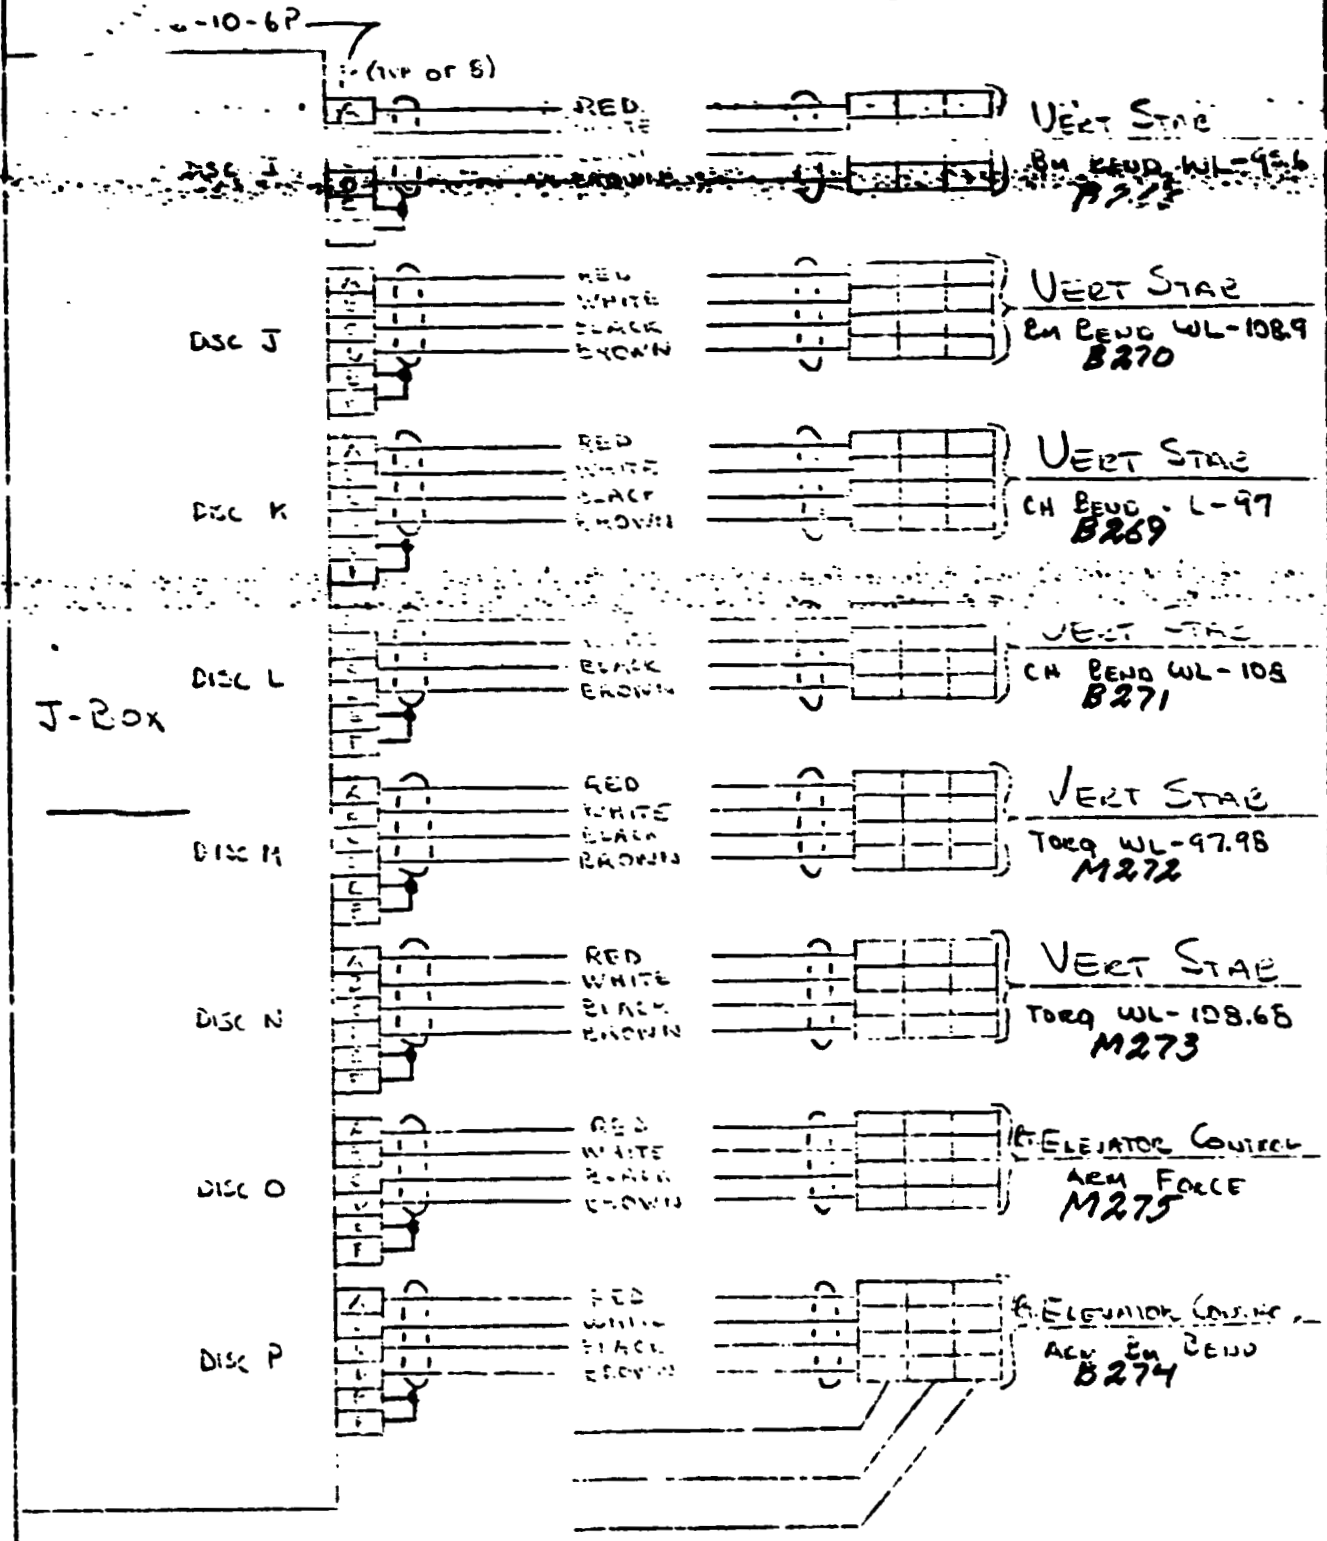 -10-6P
(TYP OF 8)
RED
VERT STAB
DISC I
BROWN
BM BEND WL-95.6
DISC J
A
RED
WHITE
BLACK
BROWN
VERT STAB
BM BEND WL-108.9
B270
DISC K
A
RED
WHITE
BLACK
BROWN
VERT STAB
CH BEND L-97
B269
DISC L
BLACK
BROWN
VERT STAB
CH BEND WL-108
B271
J-BOX
DISC M
RED
WHITE
BLACK
BROWN
VERT STAB
TORQ WL-97.98
M272
DISC N
A
RED
WHITE
BLACK
BROWN
VERT STAB
TORQ WL-108.68
M273
DISC O
A
F
RED
WHITE
BLACK
BROWN
ELEVATOR CONTROL
ARM FORCE
M275
DISC P
A
RED
WHITE
BLACK
BROWN
ELEVATOR CONTROL
ARM BM BEND
B274